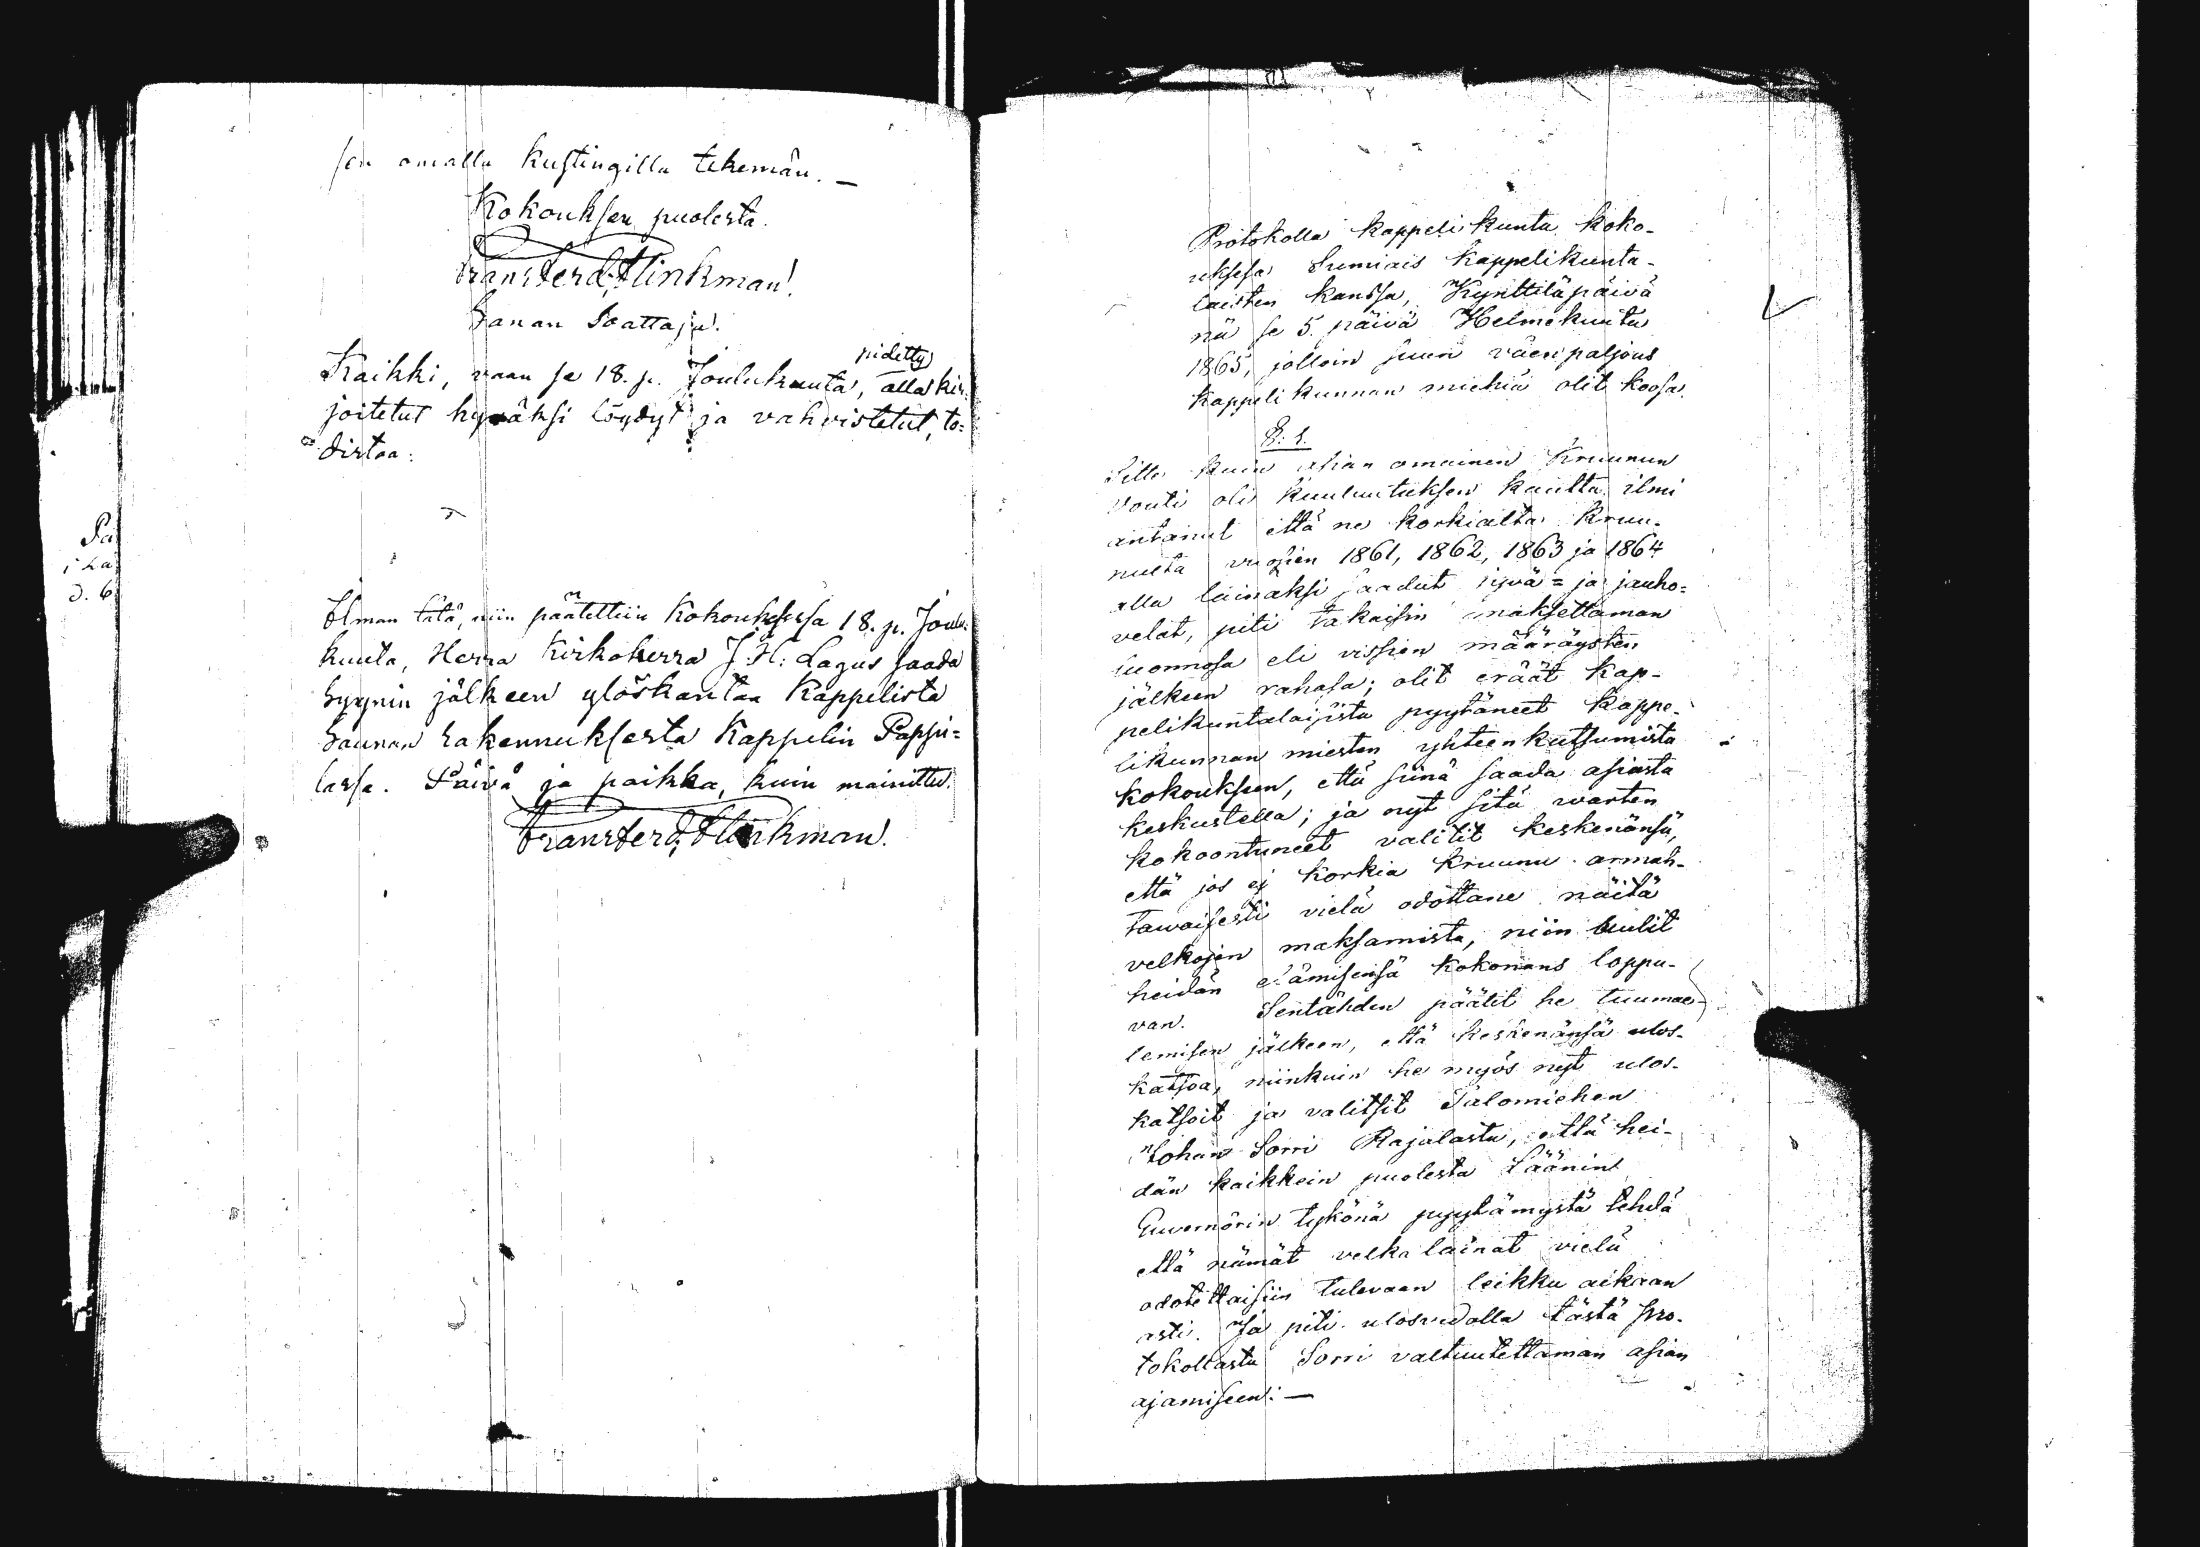 sen omalla kustingilla tekemän. —
Kokouksen puolesta.
Frans Ferd. Flinkman.
Sanan Saattaja.
pidetty
Kaikki, vaan se 18. p. Joulukuuta, alla kir-
joitetut hyväksi löydyt ja vahvistetut, to=
distaa:
Ilman tätä, niin päätettiin Kokouksessa 18. p. Joulu-
kuuta, Herra Kirkoherra J. H. Lagus saada
syynin jälkeen ylöskantaa Kappelista
Saunan rakennuksesta Kappelin Pappi=
lassa. Päivä ja paikka, kuin mainittu.
Frans Ferd. Flinkman.
Protokolla kappelikunta koko-
uksesa Sumiais kappelikunta-
laisten kanssa, Kynttiläpäivä
nä se 5. päivä Helmekuuta
1865, jolloin suuri väen paljous
kappeli kunnan miehiä olit koosa.
§. 1.
Sitte kuin asian omainen Kruunun
vouti oli kuulutuksen kautta ilmi
antanut että ne korkialta kruu-
nulta vuosien 1861, 1862, 1863 ja 1864
alla lainaksi saadut jyvä= ja jauho=
velat, piti takaisin maksettaman
luonnosa eli vissien määräysten
jälkeen rahasa; olit eräät kap-
pelikuntalaisista pyytäneet kappe-
likunnan miesten yhteenkutsumista
kokouksen, että siinä saada asiasta
keskustella; ja nyt sitä warten
kokoontuneet valitit keskenänsä,
että jos ej korkia kruunu armah-
tawaisesti vielä odottane näitä
velkojen maksamista, niin luulit
heidän elämisensä kokonans loppu-
van. Sentähden päätit he tuumae-
lemisen jälkeen, että keskenänsä ulos-
katsoa, niinkuin he myös nyt ulos-
katsoit ja valitsit Talomiehen
Johan Sorri Rajalasta, että hei-
dän kaikkein puolesta Läänin
Guvernörin tykönä pyytämystä tehdä
että nämät velka lainat vielä
odotettaisiin tulevaan leikku aikaan
asti. Ja piti ulosvedolla tästä pro-
tokollasta Sorri valtuutettaman asian
ajamiseen: —